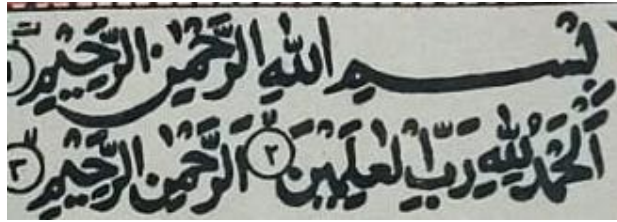 بِسْمِ اللهِ الرَّحْمٰنِ الرَّحِيْمِ ۝۱
اَلْحَمْدُ لِلّٰهِ رَبِّ الْعٰلَمِيْنَ ۝۲ الرَّحْمٰنِ الرَّحِيْمِ ۝۳